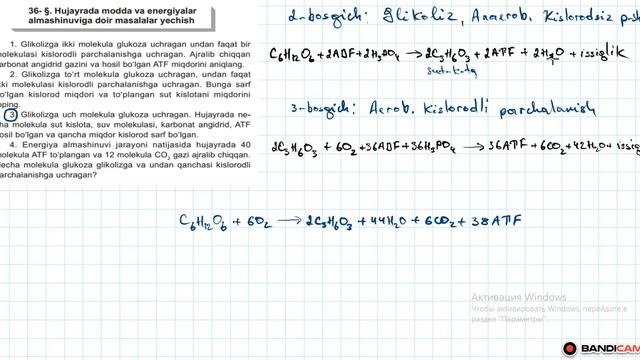 36- §. Hujayrada modda va energiyalar
almashinuviga doir masalalar yechish
1. Glikolizga ikki molekula glukoza uchragan undan faqat bir
molekulasi kislorodli parchalanishga uchragan. Ajralib chiqqan
karbonat angidrid gazini va hosil bo‘lgan ATF miqdorini aniqlang.
2. Glikolizga to‘rt molekula glukoza uchragan, undan faqat
kki molekulasi kislorodli parchalanishga uchragan. Bunga sarf
o‘lgan kislorod miqdori va to‘plangan sut kislotani miqdorini
oping.
3. Glikolizga uch molekula glukoza uchragan. Hujayrada ne-
ha molekula sut kislota, suv molekulasi, karbonat angidrid, ATF
osil bo‘lgan va qancha miqdor kislorod sarf bo‘lgan.
4. Energiya almashinuvi jarayoni natijasida hujayrada 40
molekula ATF to‘plangan va 12 molekula CO₂ gazi ajralib chiqqan.
Necha molekula glukoza glikolizga va undan qanchasi kislorodli
parchalanishga uchragan?
2-bosqich: Glikoliz, Anaerob. Kislorodsiz
C₆H₁₂O₆ + 2ADF + 2H₃PO₄ → 2C₃H₆O₃ + 2ATF + 2H₂O + issiqlik
sut k-ta
3-bosqich: Aerob. Kislorodli parchalanish
2C₃H₆O₃ + 6O₂ + 36ADF + 36H₃PO₄ → 36ATF + 6CO₂ + 42H₂O + issiq
C₆H₁₂O₆ + 6O₂ → 2C₃H₆O₃ + 44H₂O + 6CO₂ + 38ATF
Активация Windows
Чтобы активировать Windows, перейдите в
раздел "Параметры".
BANDICAM